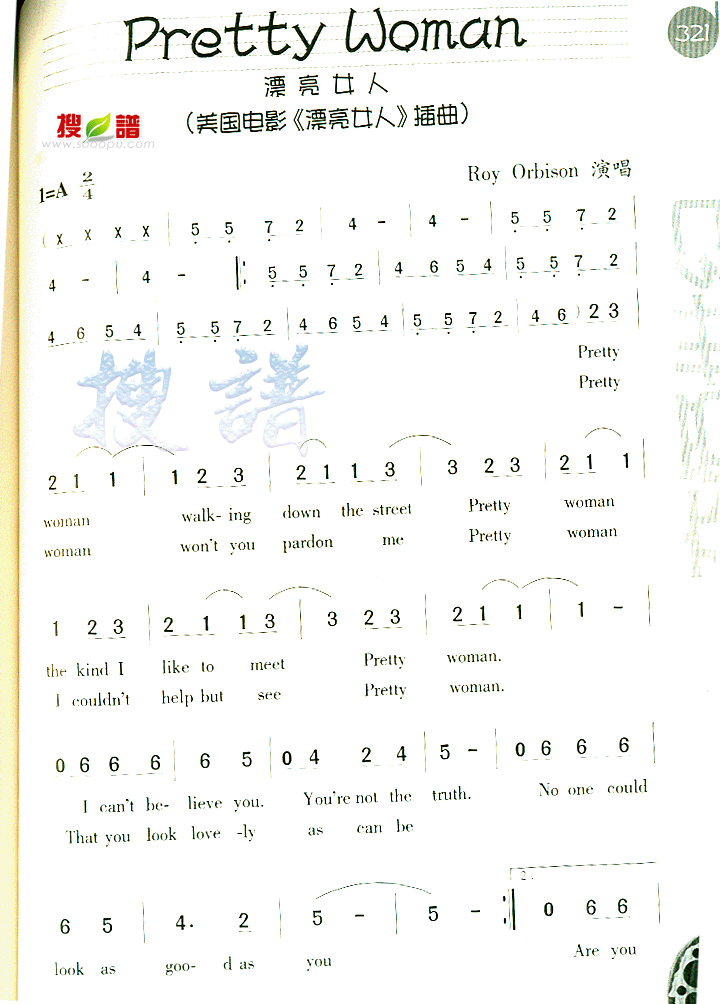 Pretty Woman
321
漂亮女人
(美国电影《漂亮女人》插曲)
搜谱
www.sooopu.com
1=A 2/4
Roy Orbison 演唱
( x x x x | 5 5 7 2 | 4 - | 4 - | 5 5 7 2
4 - | 4 - ‖: 5 5 7 2 | 4 6 5 4 | 5 5 7 2
4 6 5 4 | 5 5 7 2 | 4 6 5 4 | 5 5 7 2 | 4 6 ) 2 3
Pretty
Pretty
搜譜
2 1 1 | 1 2 3 | 2 1 1 3 | 3 2 3 | 2 1 1
woman walk- ing down the street Pretty woman
woman won't you pardon me Pretty woman
1 2 3 | 2 1 1 3 | 3 2 3 | 2 1 1 | 1 -
the kind I like to meet Pretty woman.
I couldn't help but see Pretty woman.
0 6 6 6 | 6 5 | 0 4 2 4 | 5 - | 0 6 6 6
I can't be- lieve you. You're not the truth. No one could
That you look love -ly as can be
6 5 | 4. 2 | 5 - | 5 - :‖ 2. 0 6 6
look as goo- d as you Are you